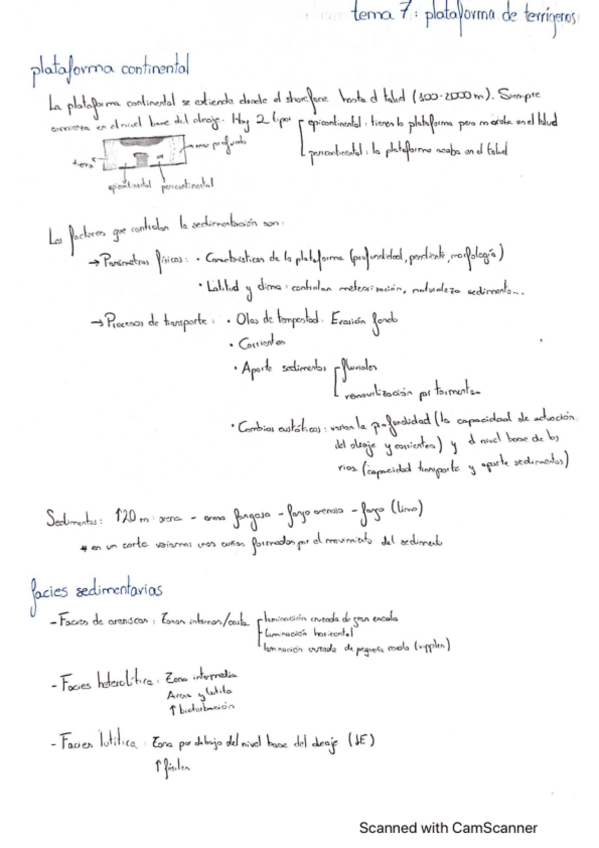 tema 7: plataforma de terrígenos
plataforma continental
La plataforma continental se extiende desde el shoreface hasta el talud (100-2000m). Siempre
comienza en el nivel base del oleaje. Hay 2 tipos
epicontinental: tienen la plataforma pero no acaba en el talud
pericontinental: la plataforma acaba en el talud
tierra
mar profundo
epicontinental pericontinental
Los factores que controlan la sedimentación son:
→ Parámetros físicos: • Características de la plataforma (profundidad, pendiente, morfología)
• Latitud y clima: controlan meteorización, naturaleza sedimento...
→ Procesos de transporte: • Olas de tempestad: Erosión fondo
• Corrientes
• Aporte sedimentos
fluviales
removilización por tormentas
• Cambios eustáticos: varían la profundidad (la capacidad de actuación
del oleaje y corrientes) y el nivel base de los
ríos (capacidad transporte y aporte sedimentos)
Sedimentos: 120m: arena - arena fangosa - fango arenoso - fango (limo)
* en un corte veríamos unas formadas por el movimiento del sedimento
facies sedimentarias
- Facies de areniscas: Zonas internas/costa
laminación cruzada de gran escala
laminación horizontal
laminación cruzada de pequeña escala (ripples)
- Facies heterolítica: Zona intermedia
Arena y lutita
↑ bioturbación
- Facies lutítica: Zona por debajo del nivel base del oleaje (↓E)
↑ fósiles
Scanned with CamScanner